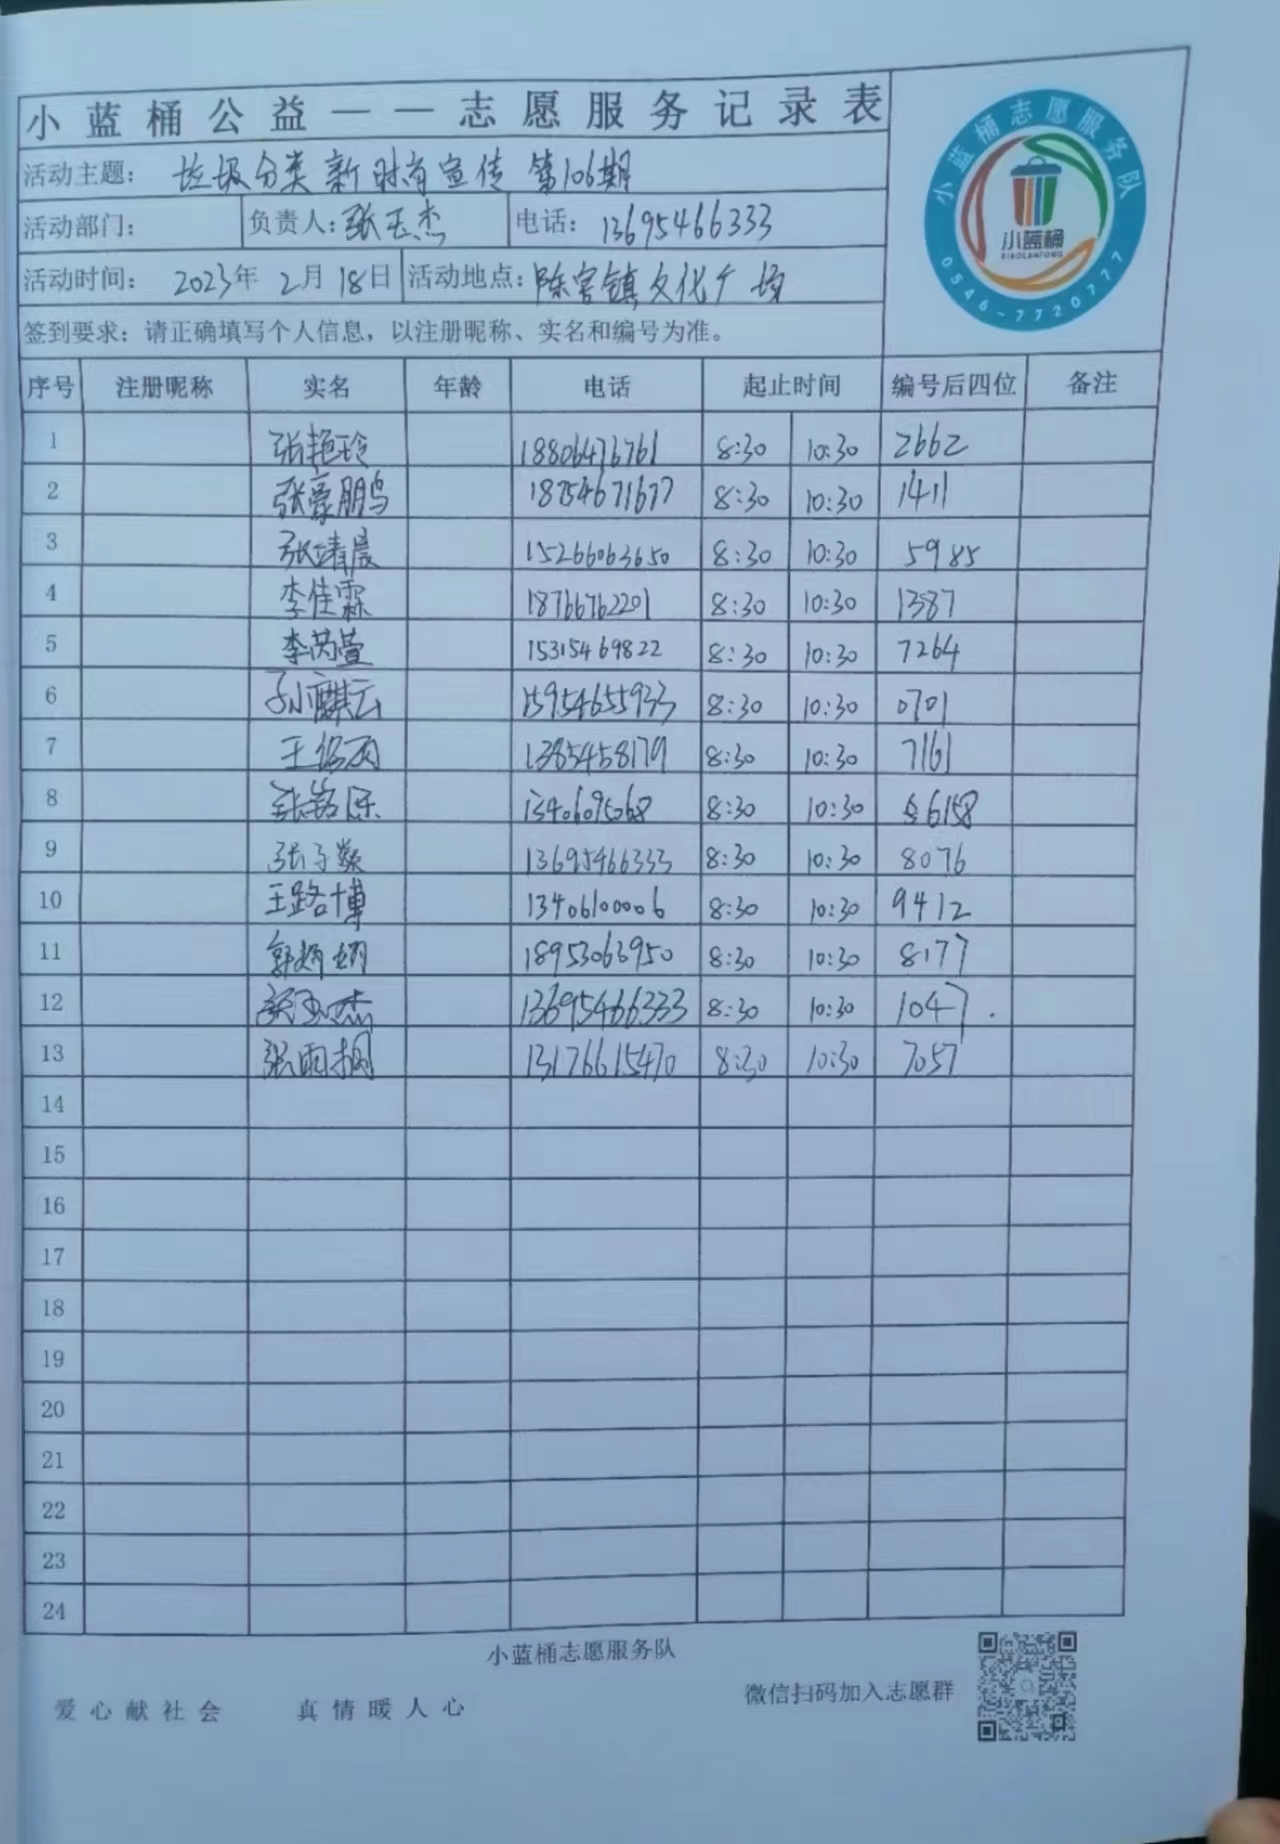 小蓝桶公益——志愿服务记录表
活动主题： 垃圾分类新时尚宣传 第106期
活动部门： 负责人：张玉杰 电话：13695466333
活动时间： 2023年 2月 18日 活动地点：陈官镇文化广场
签到要求：请正确填写个人信息，以注册昵称、实名和编号为准。
小蓝桶志愿服务队
小蓝桶
XIAOLANTONG
0546-7720777
序号 注册昵称 实名 年龄 电话 起止时间 编号后四位 备注
1 张艳玲 18806476761 8:30 10:30 2662
2 张豪鹏 18754671677 8:30 10:30 1411
3 张靖晨 15266063650 8:30 10:30 5985
4 李佳霖 18766762201 8:30 10:30 1387
5 李芮萱 15315469822 8:30 10:30 7264
6 孙麒云 15954655933 8:30 10:30 0701
7 1385458179 8:30 10:30 7161
8 1340695068 8:30 10:30 6158
9 张子 13695466333 8:30 10:30 8076
10 王路博 13406100006 8:30 10:30 9412
11 18953063950 8:30 10:30 8177
12 张玉杰 13695466333 8:30 10:30 1047
13 张雨桐 13176615470 8:30 10:30 7057
14
15
16
17
18
19
20
21
22
23
24
小蓝桶志愿服务队
爱心献社会 真情暖人心 微信扫码加入志愿群